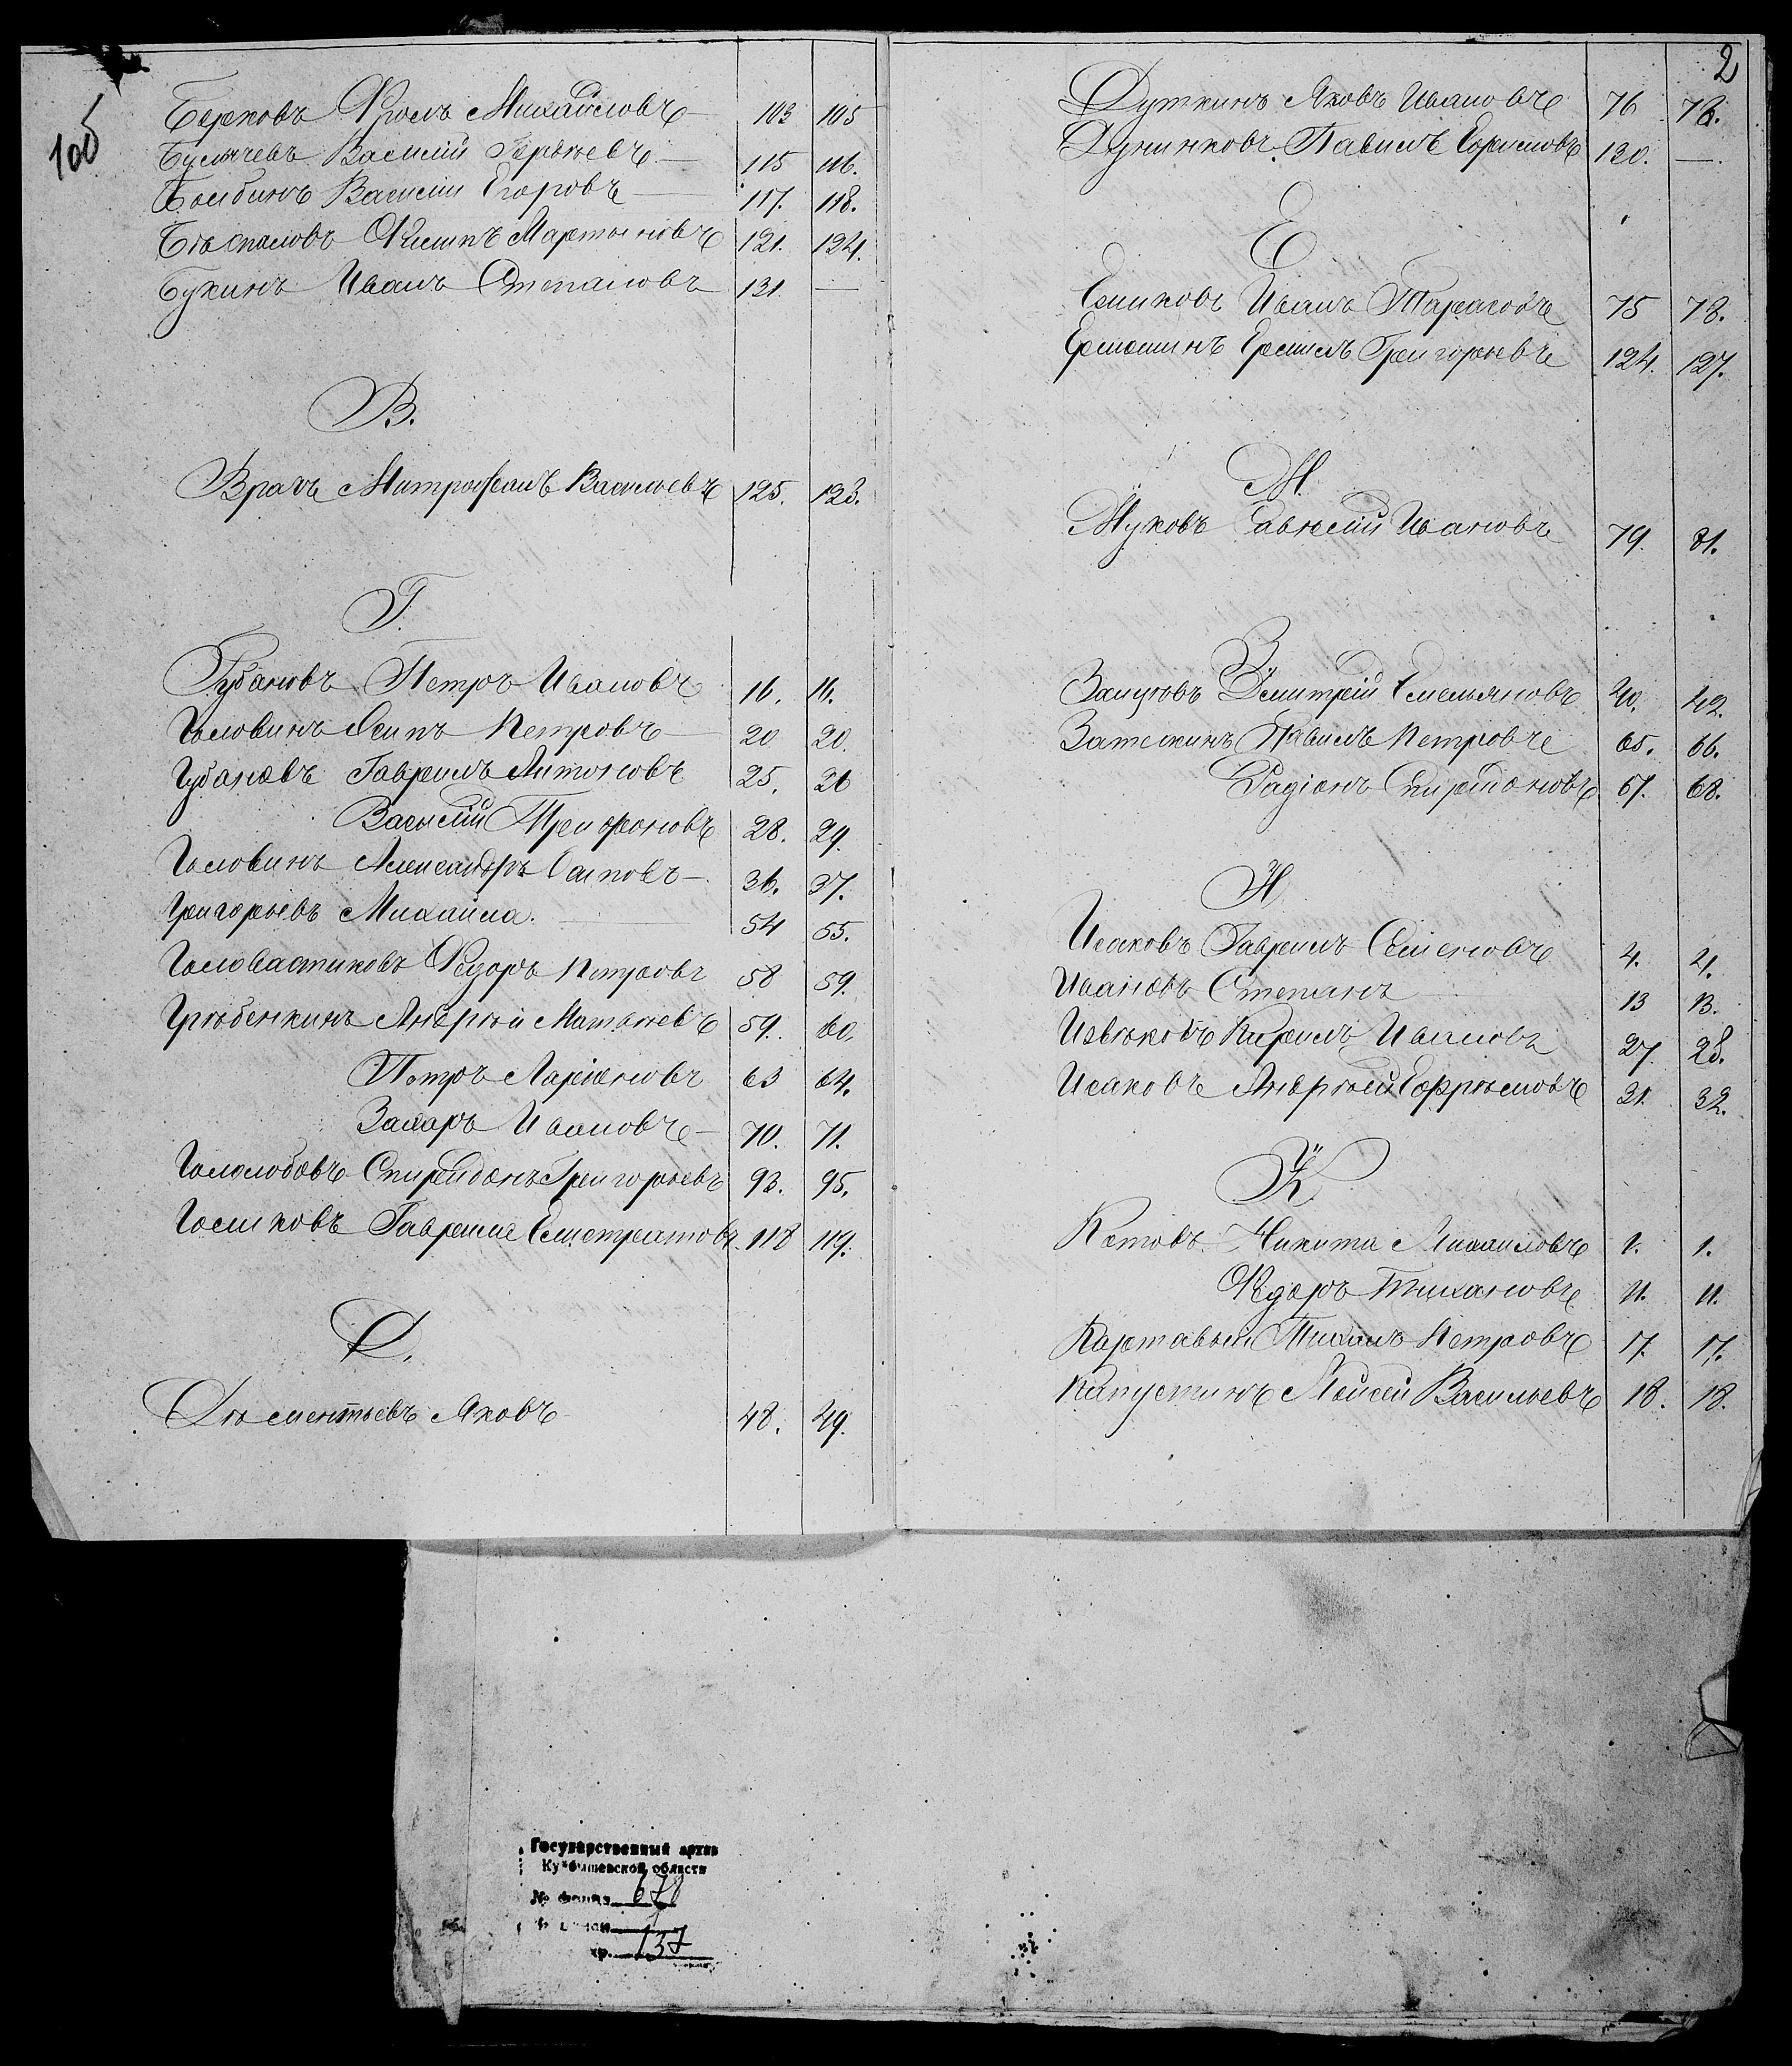 1об
Берковъ Фролъ Михайловъ 103 105
Василій Юрьевъ 115 116.
Бомбинъ Василій Егоровъ 117. 118.
Безпаловъ Филипъ Мартыновъ 121. 124.
Букинъ Иванъ Степановъ 131 —
В.
Врачъ Митрофанъ Васильевъ 125. 123.
Г.
Губановъ Петръ Ивановъ 16. 16.
Головинъ Осипъ Петровъ 20 20.
Губановъ Гаврилъ Антоновъ 25. 26
Василій Трифоновъ 28. 29.
Головинъ Александръ Осиповъ 36. 37.
Григорьевъ Михайла. 54 55.
Головастиковъ Федоръ Петровъ 58 59.
Грѣбенкинъ Андрѣй Матвѣевъ 59. 60.
Петръ Ларіоновъ 63 64.
Захаръ Ивановъ 70. 71.
Гололобовъ Спиридонъ Григорьевъ 93. 95.
Гаврила 118 119.
Д.
Дѣментьевъ Яковъ 48. 49.
2
Дуткинъ Яковъ Ивановъ 76 78.
Павилъ 120. —
Е
Иванъ Тарасовъ 75 78.
Ермошинъ Ермилъ Григорьевъ 124. 127.
Ж.
Жуковъ Савѣлій Ивановъ 79. 81.
З
Дмитрій Емельяновъ 40. 42.
Павилъ Петровъ 65. 66.
Радіонъ Спиридоновъ 67. 68.
И
Исаковъ Гаврилъ Семеновъ 4. 4.
Ивановъ Степанъ 13 13.
Извѣковъ Кирилъ Ивановъ 27. 28.
Исаковъ Андрѣй Ефрѣмовъ 31. 32.
К
Котовъ Никита Михаиловъ 1. 1.
Федоръ Тихановъ 11. 11.
Картавый Тиханъ Петровъ 17. 17.
Капустинъ Моисей Васильевъ 18. 18.
Государственный архив
Куйбышевской области
№ фонда 678
137